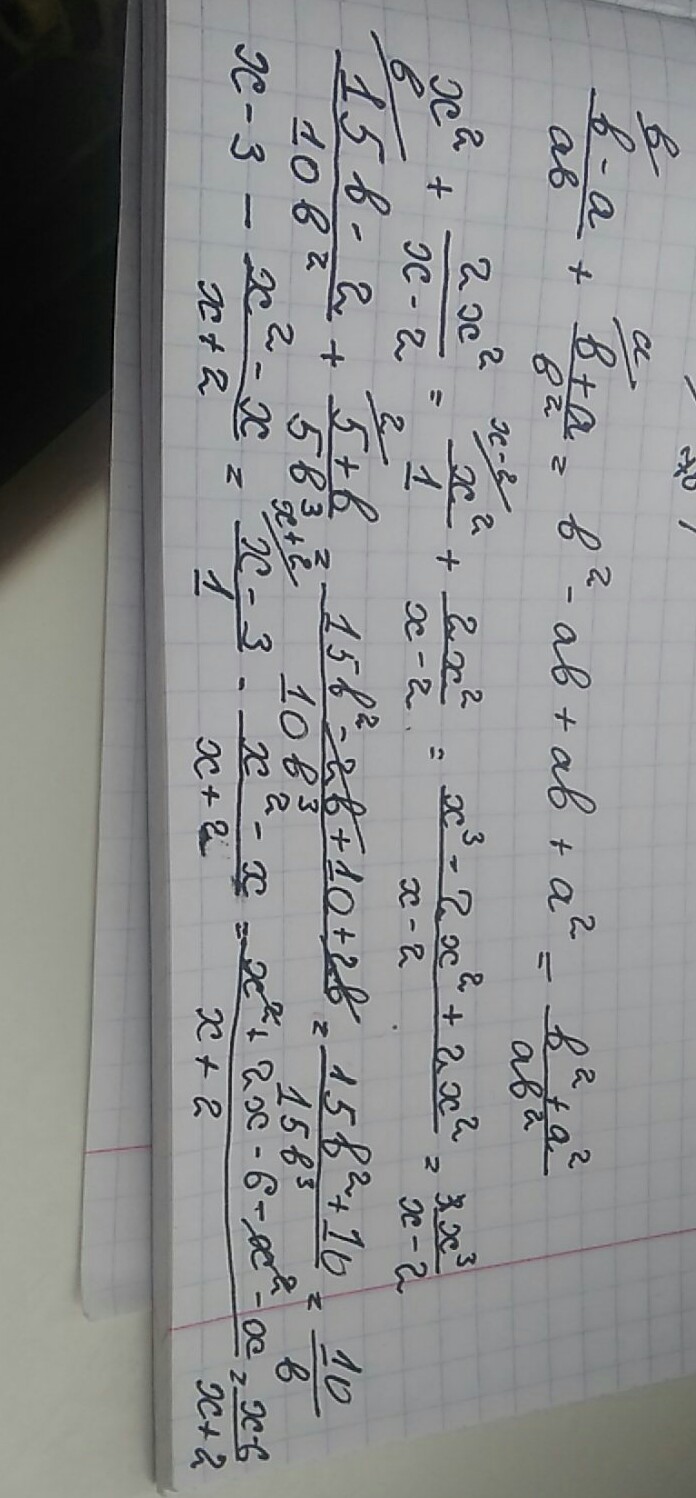 (b-a)/ab + (b+a)/b² = b² - ab + ab + a² = (b²+a²)/ab²
x² + 2x²/(x-2) = x²/1 + 2x²/(x-2) = (x³ - 2x² + 2x²)/(x-2) = x³/(x-2)
(15b-2)/10b² + (5+b)/5b³ = (15b² - 2b + 10 + 2b)/10b³ = (15b²+10)/15b³ = 10/b
x-3 - (x²-x)/(x+2) = (x-3)/1 - (x²-x)/(x+2) = (x² + 2x - 6 - x² - x)/(x+2) = (x-6)/(x+2)